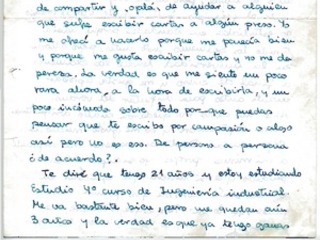 de compartir y, ojalá, de ayudar a alguien
que sufre escribir cartas a algún preso. Yo
me ofrecí a hacerlo porque me parecía bien
y porque me gusta escribir cartas y no me da
pereza. La verdad es que me siento un poco
rara ahora, a la hora de escribirla, y un
poco incómoda sobre todo por-que puedas
pensar que te escribo por compasión o algo
así pero no es eso. De persona a persona
¿de acuerdo?.
Te diré que tengo 21 años y estoy estudiando
Estudio 4º curso de Ingeniería industrial.
Me va bastante bien, pero me quedan aún
3 años y la verdad es que ya tengo ganas